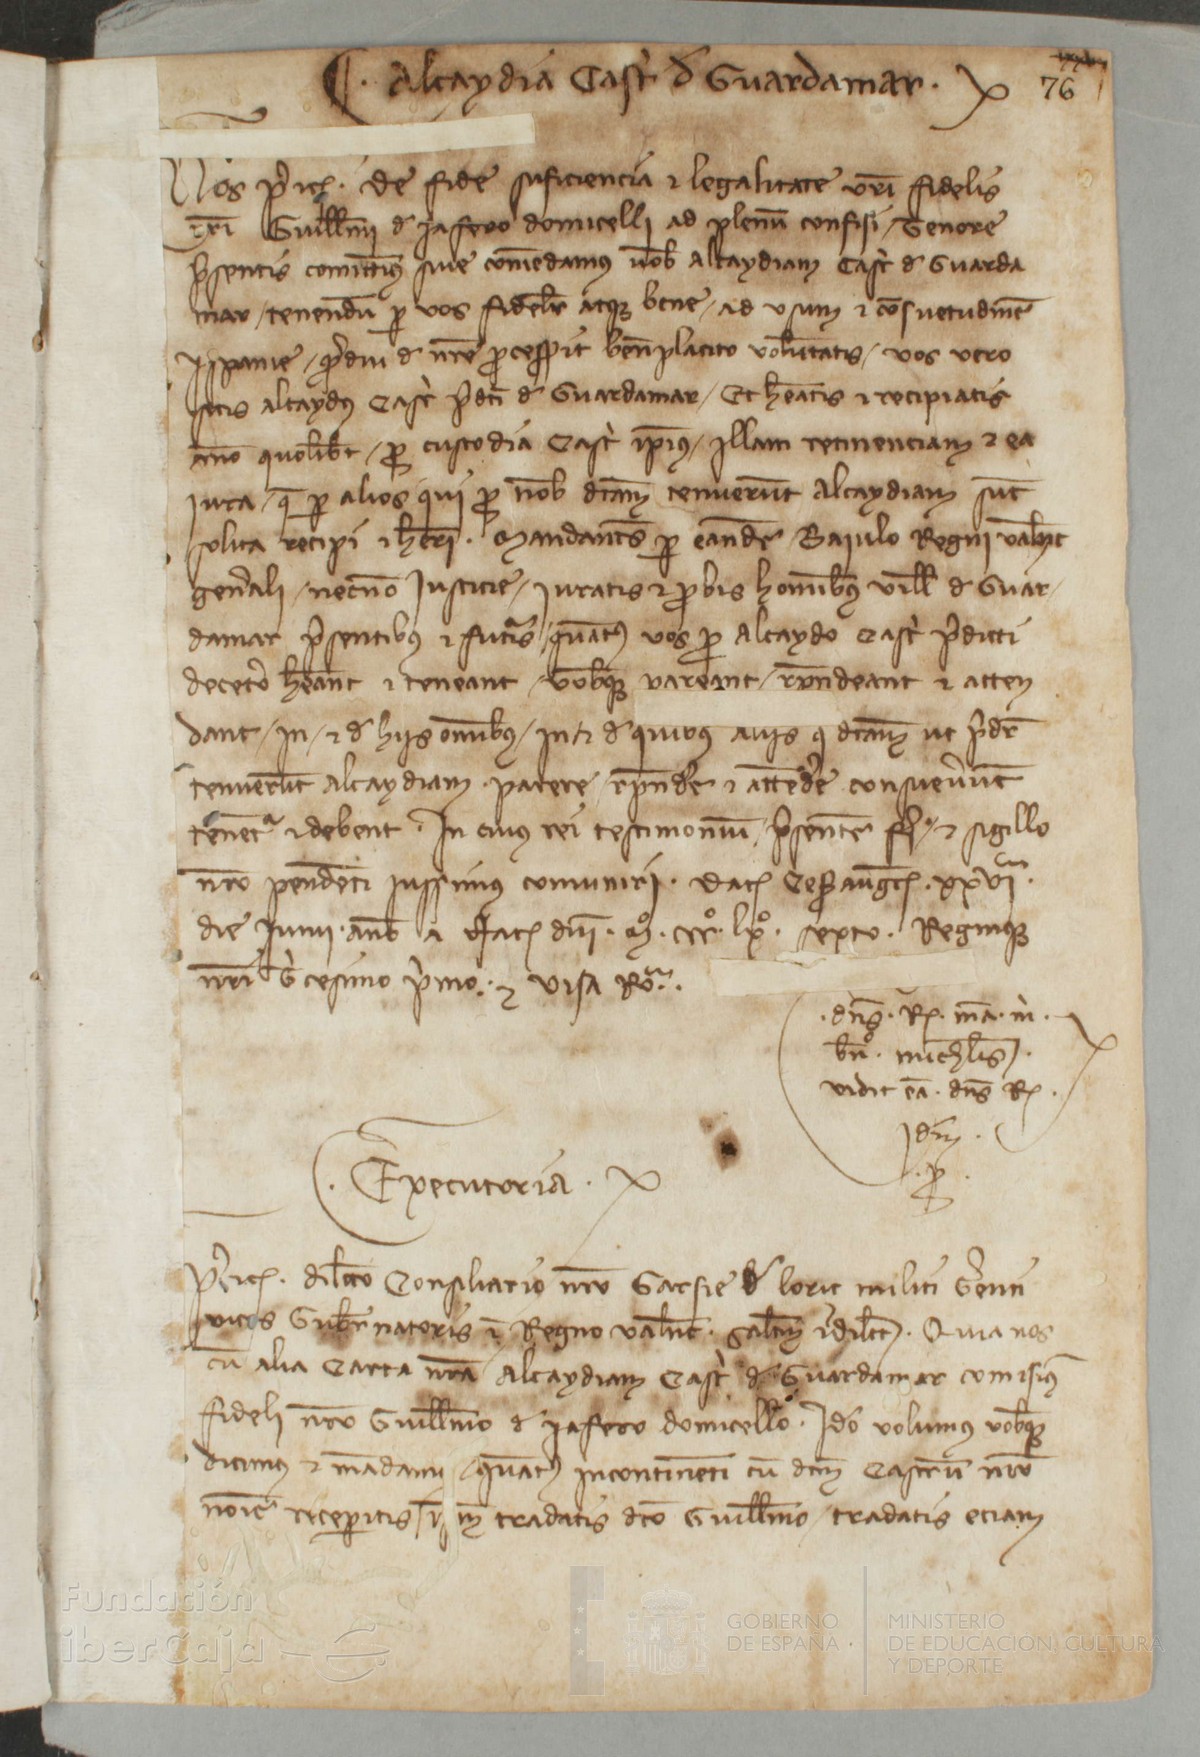 Alcaydia Cast d Guardamar
76
Nos petrus . de fide suficiencia et legalitate vri fidelis
nri Guillmi d Jafero domicelli ad plenu confisi / Tenore
psentis comittim sive comedamus vob Alcaydiam Cast d Guarda
mar / tenendu p vos fidelr atq bene / ad usum et consuetudine
Ispanie / de nre pcesserit benplacito voluntatis / vos vero
sitis alcaydus Cast pdcti d Guardamar / Et heatis et recipiatis
anno quolibt / pro custodia Cast ipius / illam retinenciam et ea
iura / q p alios qui pro nob dcam tenuerunt Alcaydiam sut
solita recipi et heri . Mandantes p eande Baiulo Regni valent
genali / necno Justicie / Juratis et probis hominibus ville d Guar
damar psentibus et futuris / quatus vos pro Alcaydo Cast pdicti
decetero heant et teneant / vobq pareant / rpndeant et atten
dant / in / et d hiis omnibus / in / et d quibus aliis q dcam ut pdr
tenuerunt Alcaydiam . parere / rpndere et attedere consueverut
tenet et debent . In cuius rei testimonium / psente fi et sigillo
nro pendenti iussimus comuniri . Dat Cesaraugt . xxvi
die Junii . anno a Nat dni . M . ccc . lx . sexto . Regniq
nri Tricesimo primo . et visa Ro .
. dns . Rx . ma . m .
bn . michlis .
vidit ea . dns Rx .
idm .
. p .
. Executoria .
Petrus . dilcto Consiliario nro Garsie d loric militi Gerenti
vices Gubernatoris i Regno valent . saltm et dilct . Quia nos
cu alia Carta nra Alcaydiam Cast d Guardamar comisim
fideli nro Guillmo d Jafero domicello . Ido volumus vobq
dicimus et madamus / quatus incontinenti cu dcm Castru nro
noie receperitis / tradatis dco Guillmo / tradatis etiam
Fundación
iberCaja
GOBIERNO
DE ESPAÑA
MINISTERIO
DE EDUCACIÓN, CULTURA
Y DEPORTE